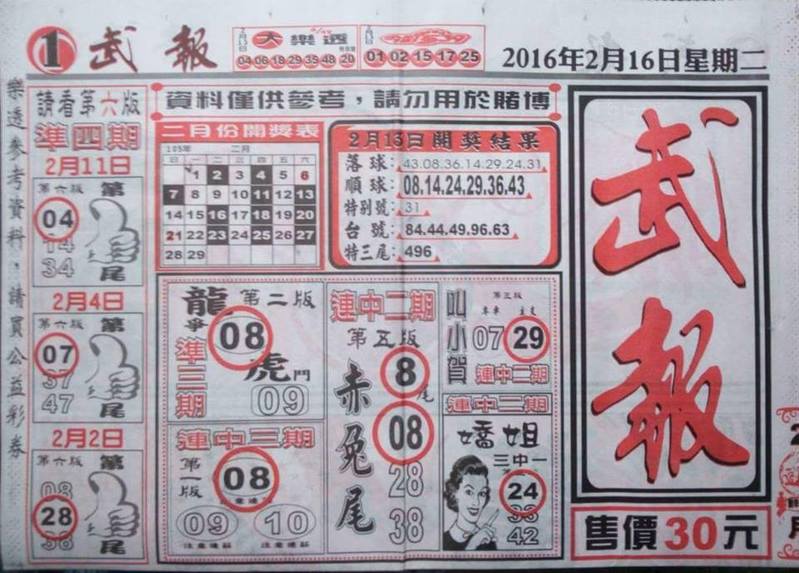 1 武報
2月13日 大樂透
04 06 18 29 35 48 20
01 02 15 17 25
2016年2月16日星期二
樂透參考資料，請買公益彩券
請看第六版
準四期
2月11日
第六版 第
04
14
34
尾
2月4日
第六版 第
07
37
47
尾
2月2日
第六版 第
08
28
38
尾
資料僅供參考，請勿用於賭博
二月份開獎表
105年 二月
日 一 二 三 四 五 六
1 2 3 4 5 6
7 8 9 10 11 12 13
14 15 16 17 18 19 20
21 22 23 24 25 26 27
28 29
2月13日開獎結果
落球：43.08.36.14.29.24.31
順球：08.14.24.29.36.43
特別號：31
台號：84.44.49.96.63
特三尾：496
龍爭虎鬥
第二版
準三期
08
09
連中三期
第一版
08
09 10
注意連莊 注意連莊
連中二期
第五版
赤兔尾
8尾
08
28
38
叫小賀
第三版
07 29
連中二期
連中二期
嬌姐
三中一
24
33
42
武報
售價30元